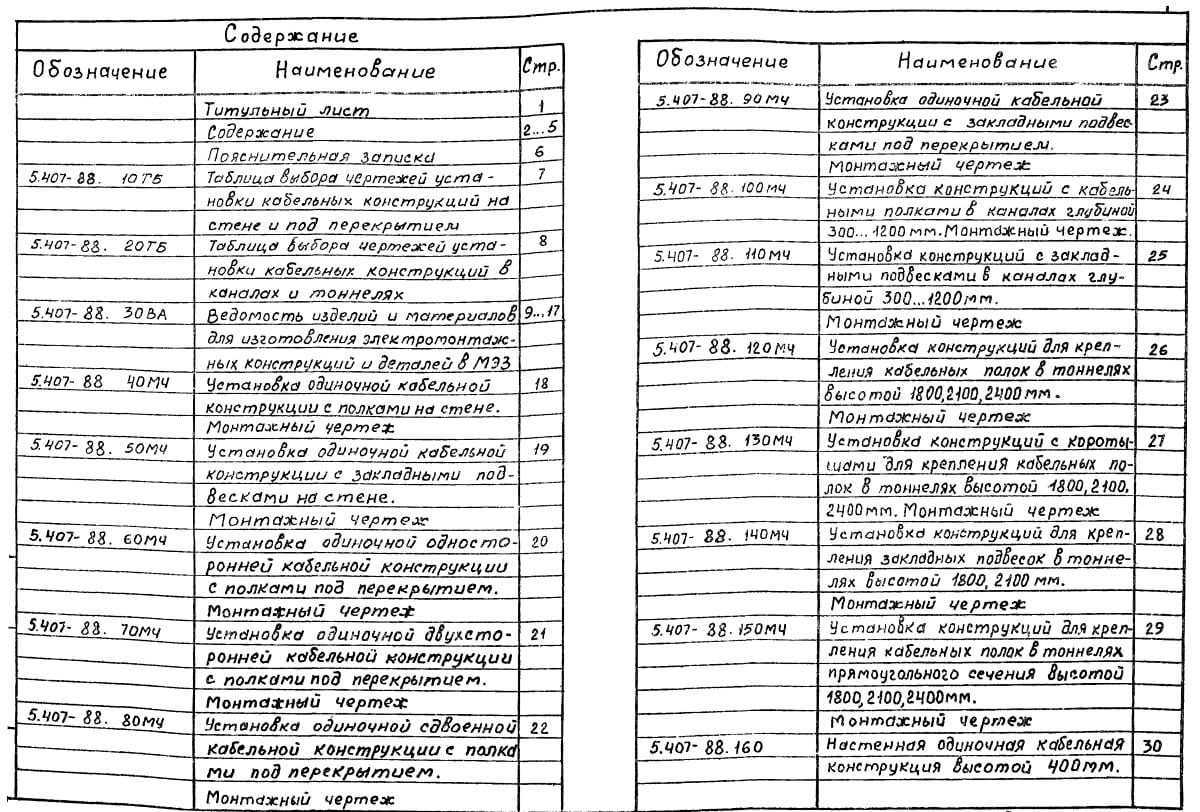 Содержание
Обозначение Наименование Стр.
Титульный лист 1
Содержание 2...5
Пояснительная записка 6
5.407-88. 10ТБ Таблица выбора чертежей уста- 7
новки кабельных конструкций на
стене и под перекрытием
5.407-88. 20ТБ Таблица выбора чертежей уста- 8
новки кабельных конструкций в
каналах и тоннелях
5.407-88. 30ВА Ведомость изделий и материалов 9...17
для изготовления электромонтаж-
ных конструкций и деталей в МЭЗ
5.407-88 40МЧ Установка одиночной кабельной 18
конструкции с полками на стене.
Монтажный чертеж
5.407-88. 50МЧ Установка одиночной кабельной 19
конструкции с закладными под-
весками на стене.
Монтажный чертеж
5.407-88. 60МЧ Установка одиночной односто- 20
ронней кабельной конструкции
с полками под перекрытием.
Монтажный чертеж
5.407-88. 70МЧ Установка одиночной двухсто- 21
ронней кабельной конструкции
с полками под перекрытием.
Монтажный чертеж
5.407-88. 80МЧ Установка одиночной сдвоенной 22
кабельной конструкции с полка
ми под перекрытием.
Монтажный чертеж
Обозначение Наименование Стр.
5.407-88. 90МЧ Установка одиночной кабельной 23
конструкции с закладными подвес-
ками под перекрытием.
Монтажный чертеж
5.407-88. 100МЧ Установка конструкций с кабель- 24
ными полками в каналах глубиной
300...1200мм. Монтажный чертеж.
5.407-88. 110МЧ Установка конструкций с заклад- 25
ными подвесками в каналах глу-
биной 300...1200мм.
Монтажный чертеж
5.407-88. 120МЧ Установка конструкций для креп- 26
ления кабельных полок в тоннелях
высотой 1800,2100,2400мм.
Монтажный чертеж
5.407-88. 130МЧ Установка конструкций с короты- 27
шами для крепления кабельных по-
лок в тоннелях высотой 1800, 2100,
2400мм. Монтажный чертеж
5.407-88. 140МЧ Установка конструкций для креп- 28
ления закладных подвесок в тонне-
лях высотой 1800, 2100мм.
Монтажный чертеж
5.407-88.150МЧ Установка конструкций для креп- 29
ления кабельных полок в тоннелях
прямоугольного сечения высотой
1800,2100,2400мм.
Монтажный чертеж
5.407-88.160 Настенная одиночная кабельная 30
конструкция высотой 400мм.